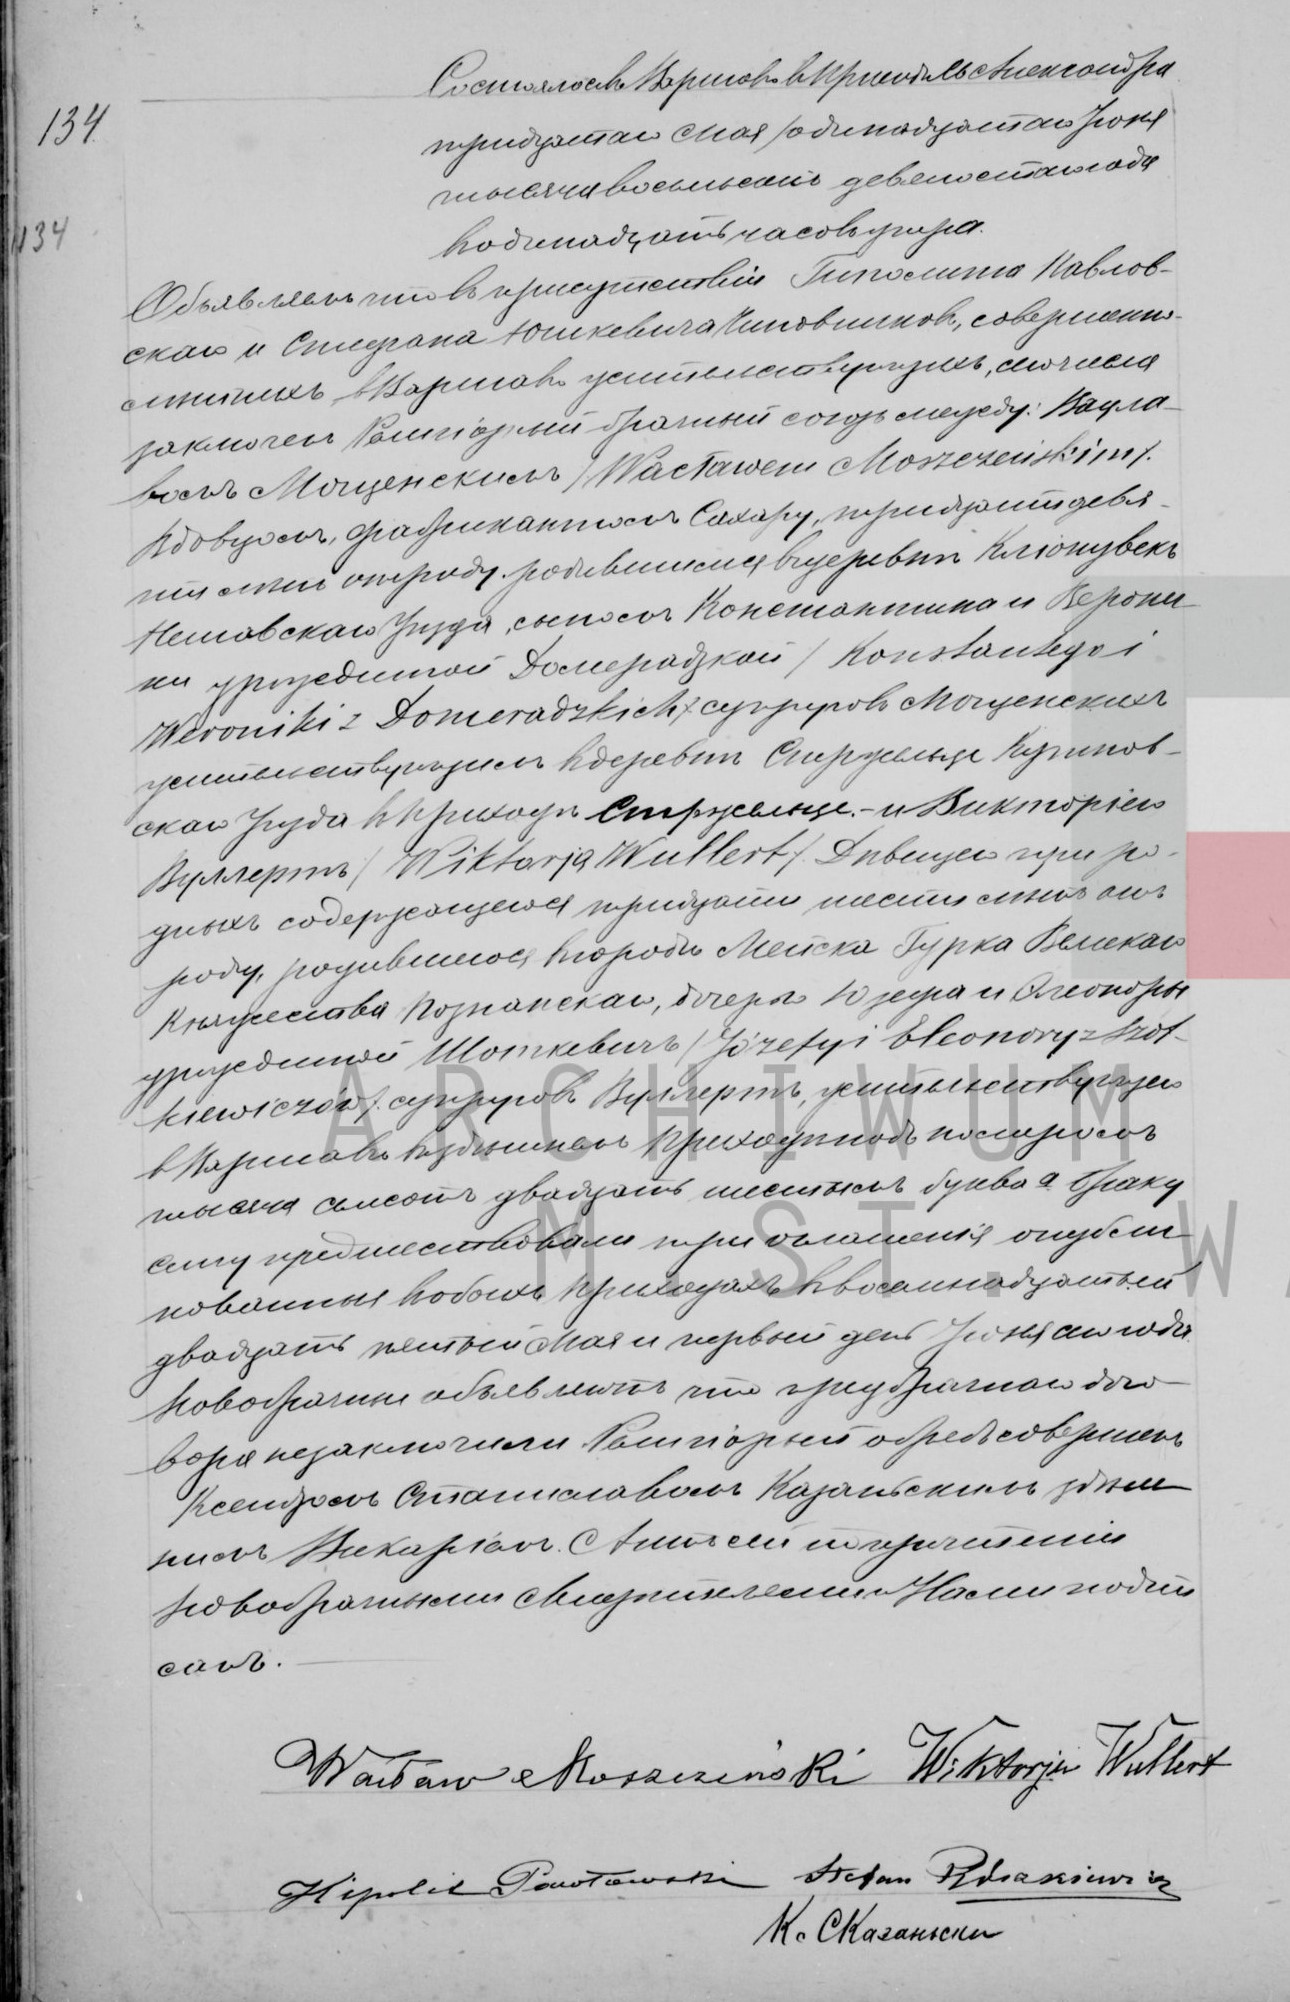 134
134
Состоялось въ Варшаве въ Приходе Св Александра
тридцатаго Мая / одинадцатаго Іюня
тысяча восемьсотъ девяностаго года
въ одинадцать часовъ утра.
Объявляемъ что въ присутствіи Гиполита Павлов-
скаго и Стефана чиновниковъ, совершенно-
летнихъ въ Варшаве жительствующихъ, сего числа
заключенъ Религіозный брачный союзъ между: Вацла-
вомъ Мощенскимъ / Wacławem Moszczeńskim /.
Вдовцомъ, фабрикантомъ Сахару, тридцати девя-
ти летъ отъ роду. родившимся въ деревни
Нешавскаго Уезда, сыномъ Константина и Верони-
ки урожденной Домерадзкой / Konstantego i
Weroniki z Domeradzkich / супруговъ Мощенскихъ
жительствующимъ въ деревни Стржельце Кутнов-
скаго Уезда въ Приходе Стржельце. - и Викторіею
Вуллертъ / Wiktorją Wullert /. Девицею при ро-
дныхъ содержащеюся тридцати шести летъ отъ
роду, родившеюся въ городе Мейска Гурка Великаго
Княжества Познанскаго, дочерью Юзефа и Элеоноры
урожденной Шоткевичъ / Józefy i Eleonory z Szot-
kiewiczów /. супруговъ Вуллертъ, жительствующею
въ Варшаве въ здешнемъ Приходе подъ номеромъ
тысяча семсотъ двадцать шестымъ буква а Браку
сему предшествовали три оглашенія опубли-
кованныя въ обоихъ Приходахъ въ восемнадцатый
двадцать пятый Мая и первый день Іюня сего года
Новобрачные объявляютъ что предбрачнаго дого-
вора незаключили Религіозный обредъ совершенъ
Ксендзомъ Станиславомъ Казаньскимъ здеш-
нимъ Викаріемъ. Актъ сей по прочтеніи
Новобрачными Свидетелями и Нами подпи
санъ.
Wacław Moszczeński Wiktorja Wullert
Hipolit Pawłowski Stefan
К. С Казаньски
ARCHIWUM
M. ST. WA